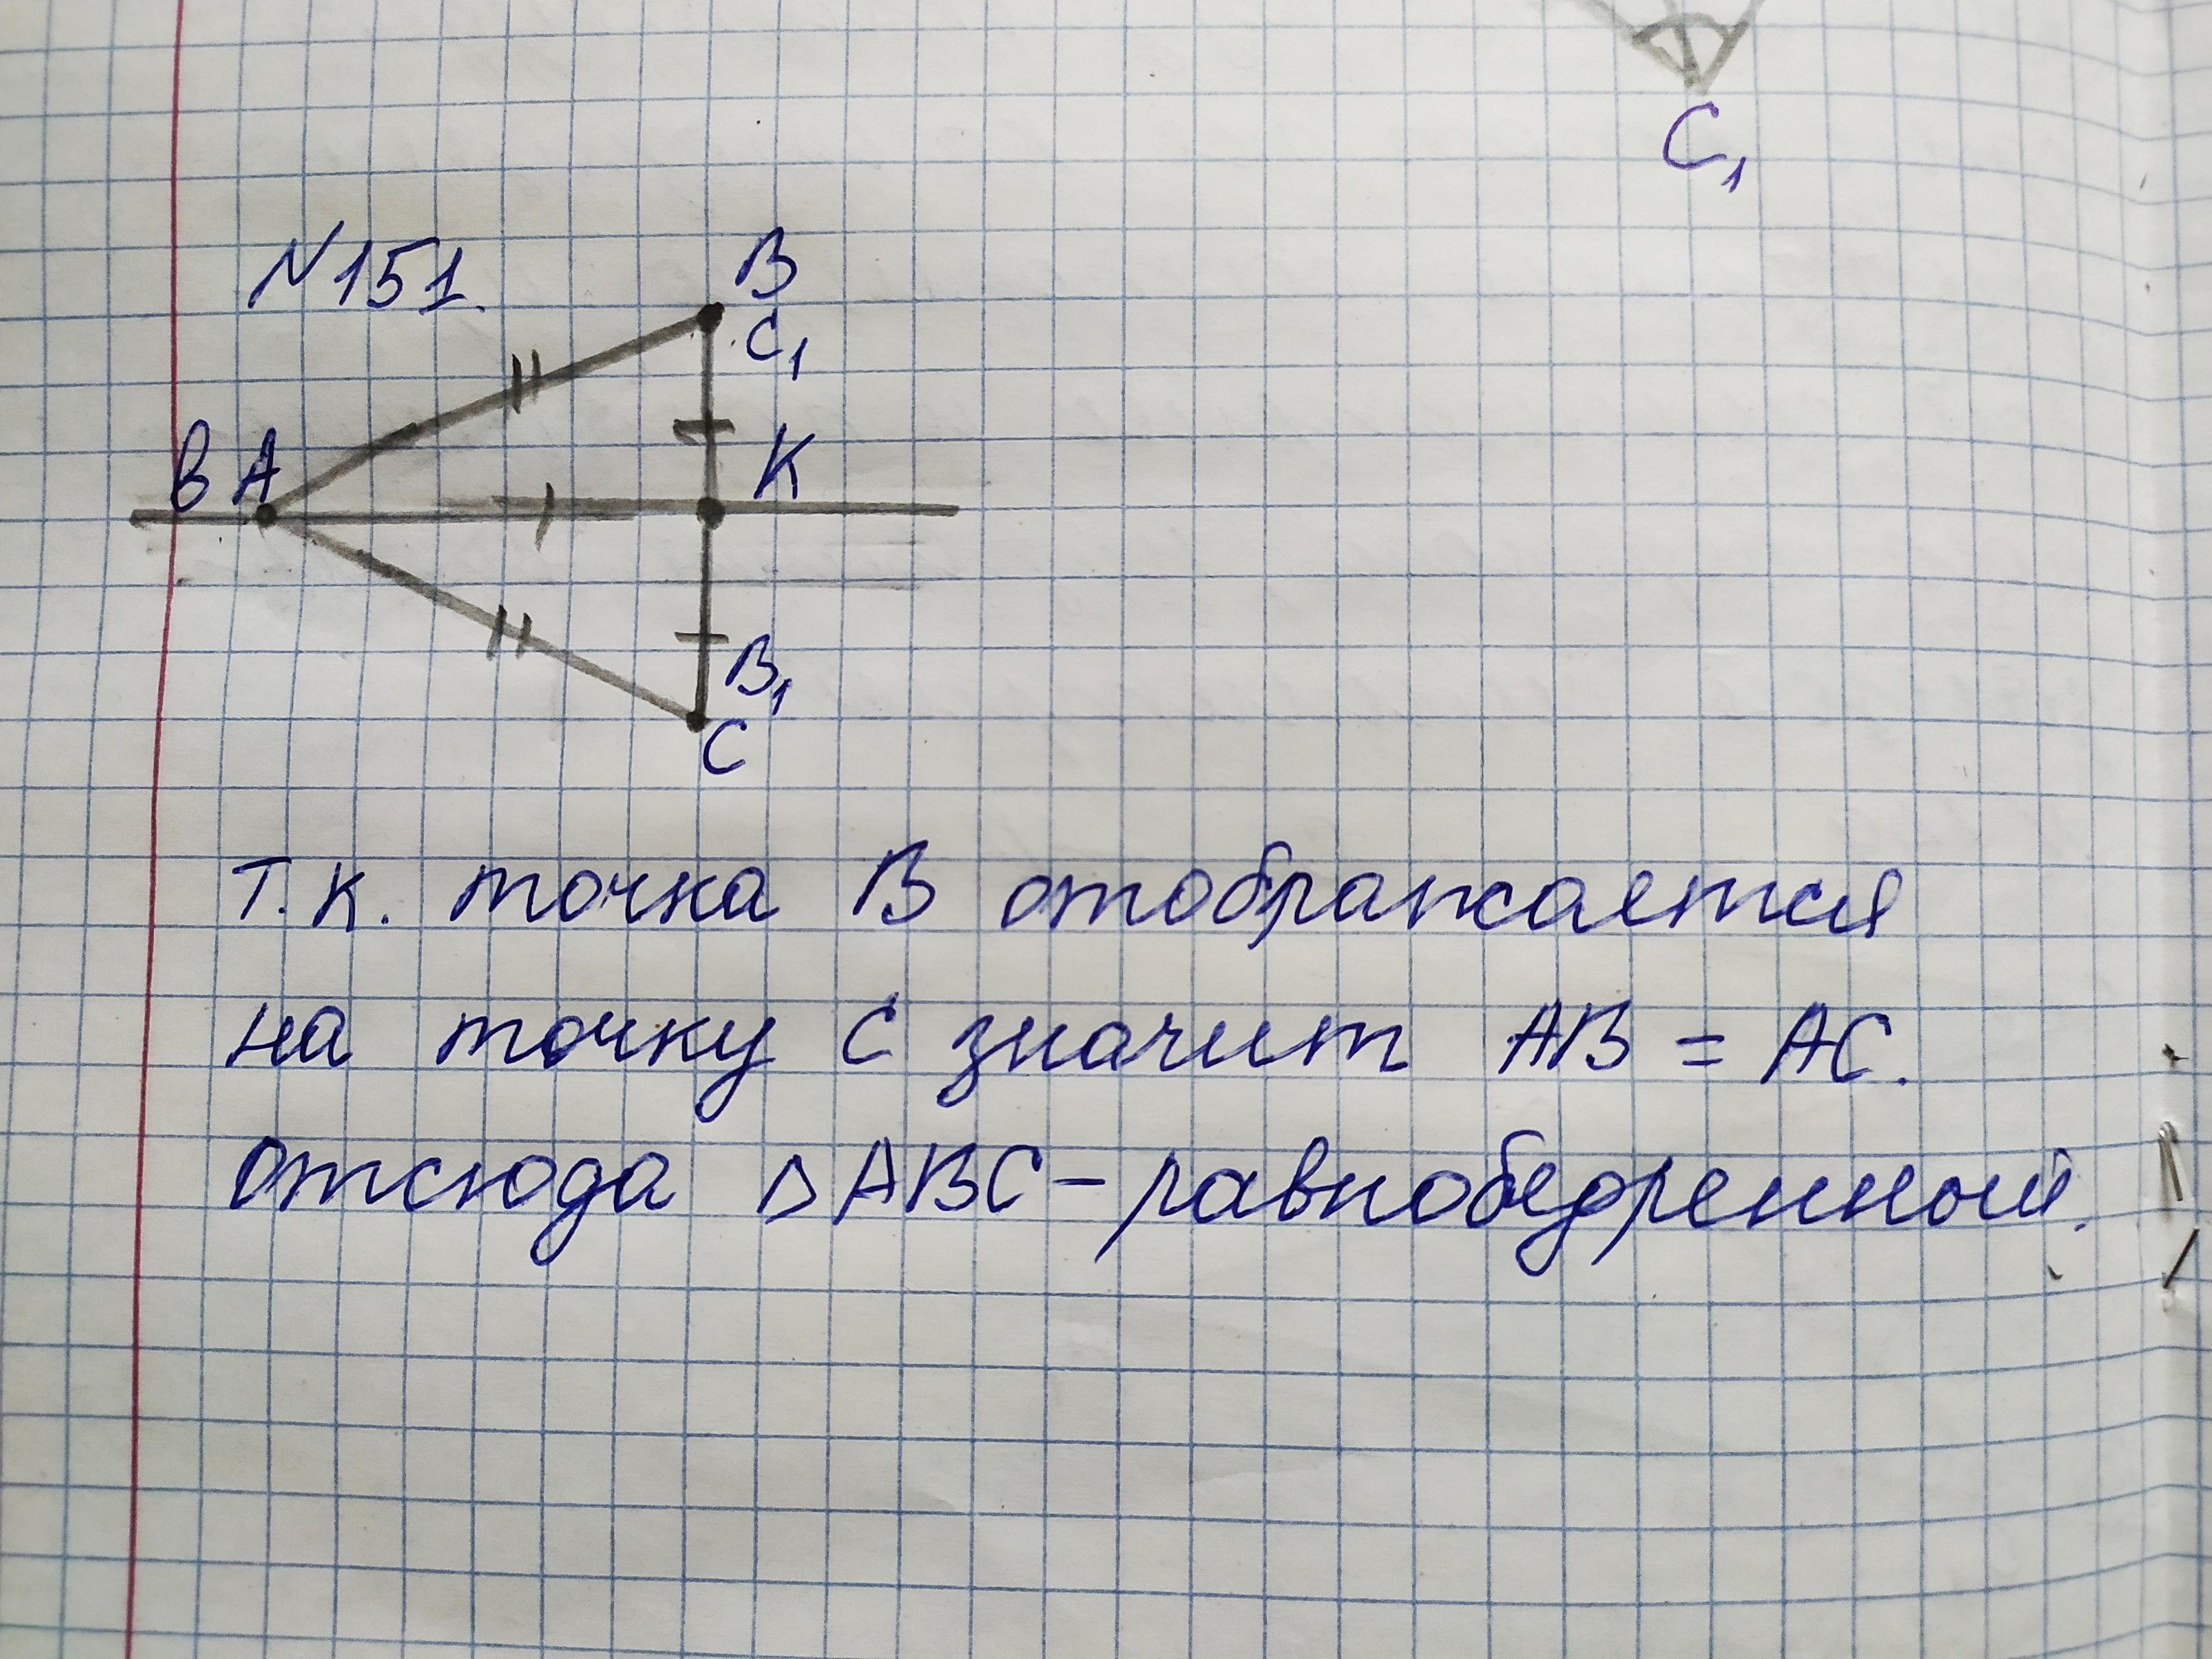 C₁
N151.
B
C₁
в A
K
B₁
C
т.к. точка B отображается
на точку C значит AB = AC.
Отсюда △ABC - равнобедренный.